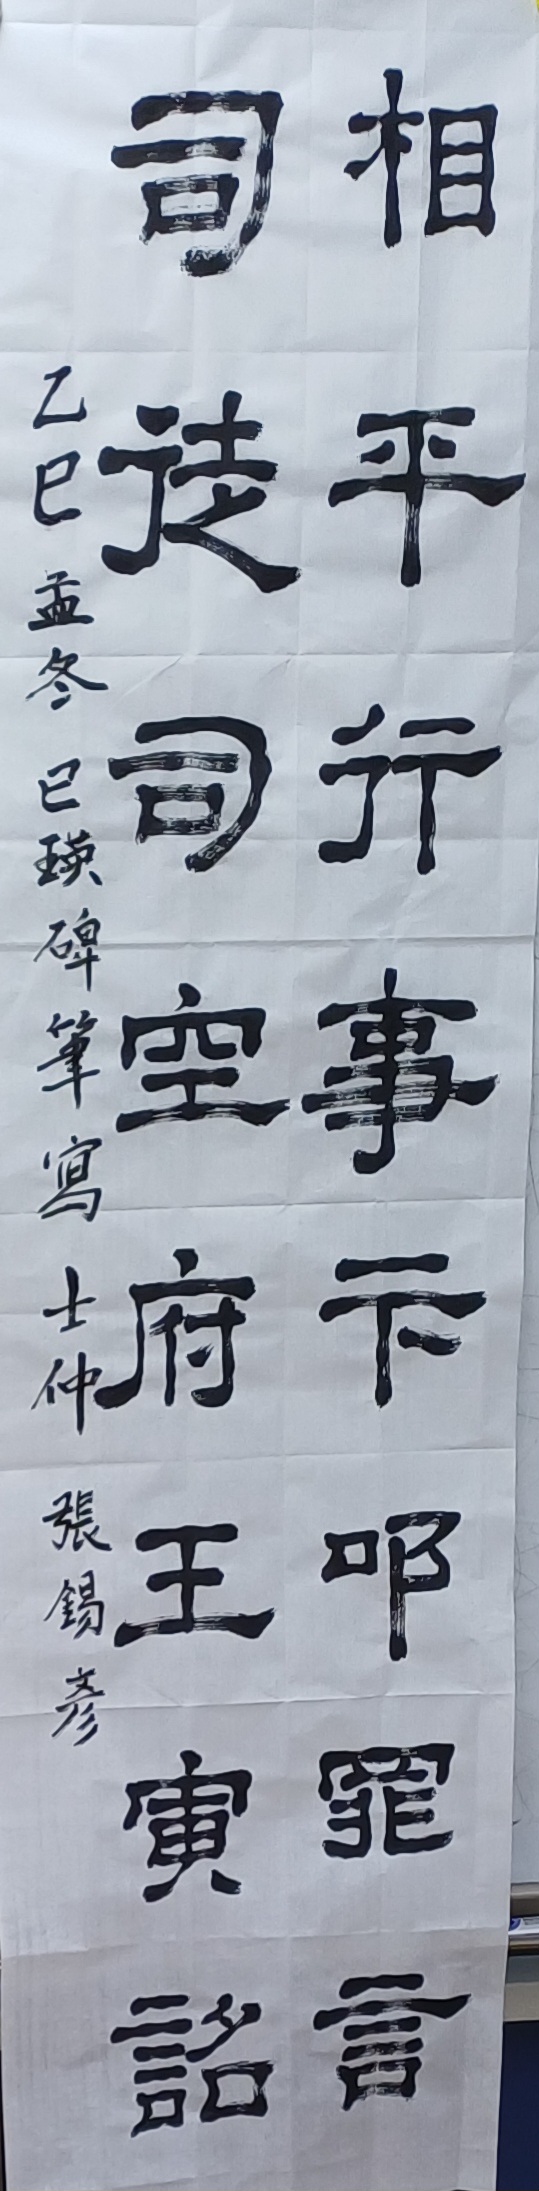 相平行事卞叩罪言
司徒司空府王寅詔
乙巳孟冬 已瑛碑筆寫 士仲 張錫彥